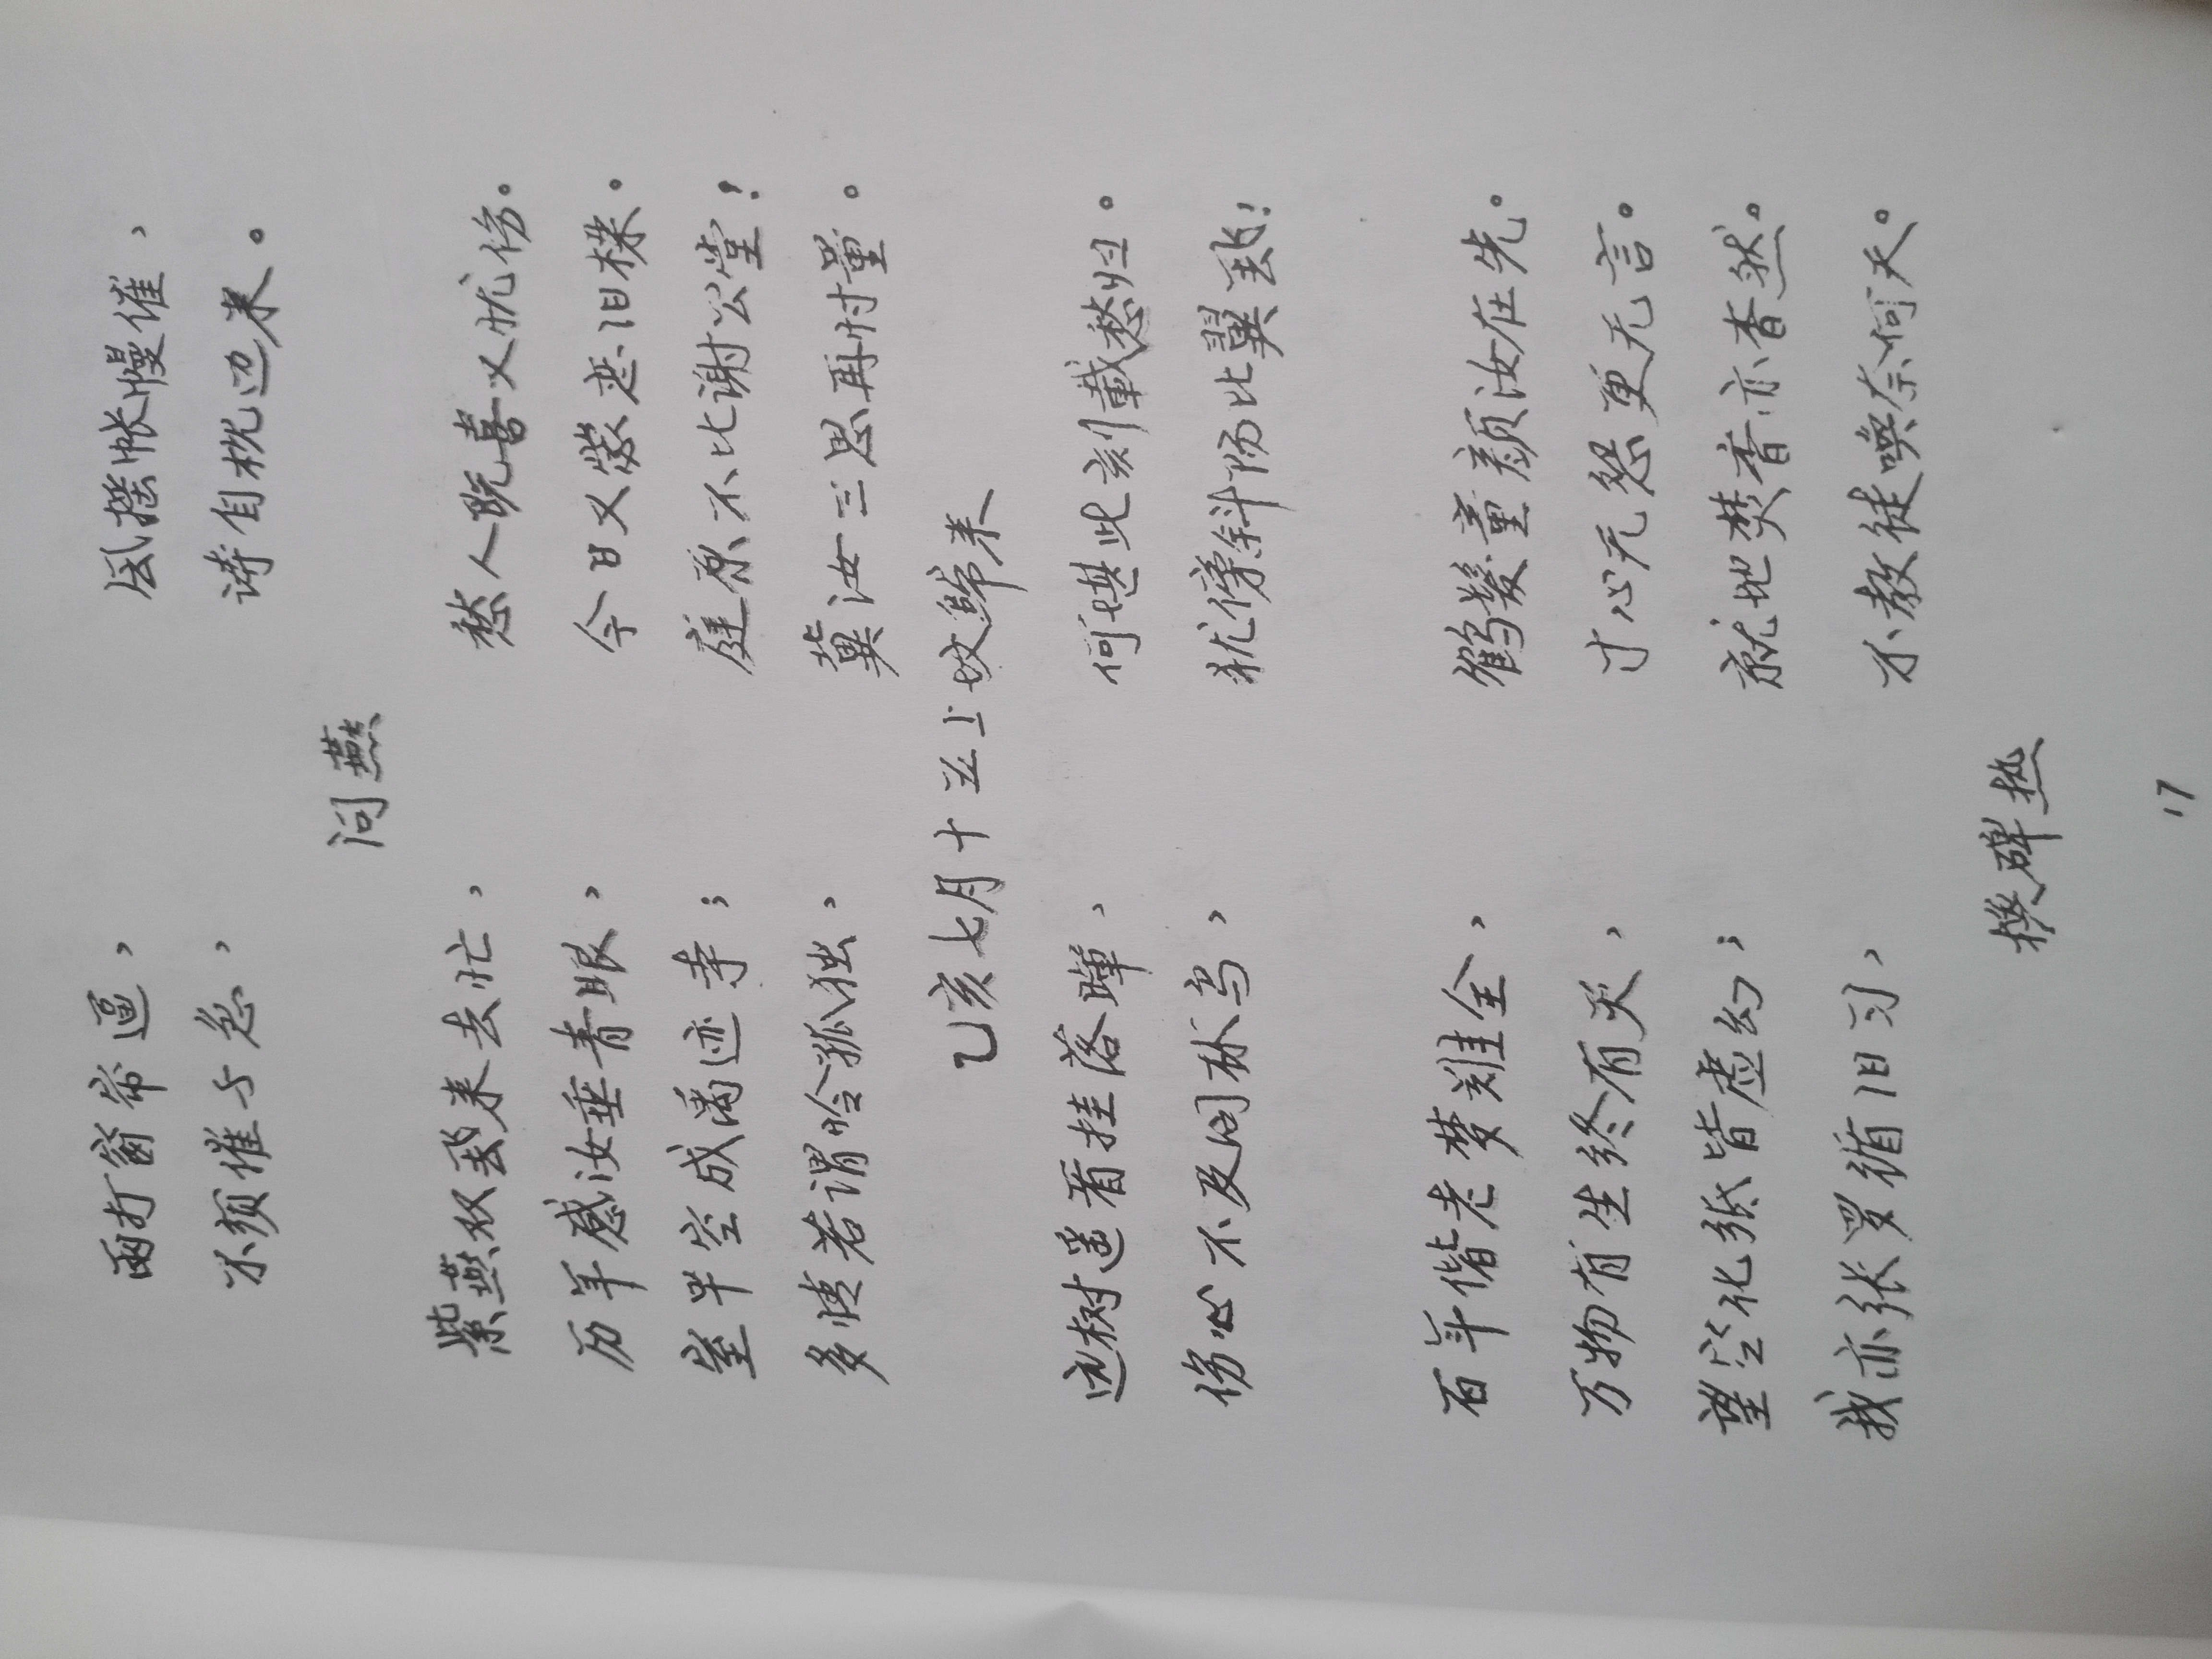 雨打窗帘逼， 风摇帐幔催，
不须催与急， 诗自枕边来。
问燕
紫燕双飞来去忙， 愁人既喜又忧伤。
历年感汝垂青眼， 今日又蒙恋旧樑。
室早空成潘迹寺； 庭原不比谢公堂！
多情若谓怜孤独， 冀汝三思再忖量。
乙亥七月十五上坟归来
远树遥看挂落晖， 何堪此刻载愁归。
伤心不及同林鸟， 犹傍斜阳比翼飞！
百年偕老梦难全， 鹤髪童颜汝在先。
万物有生终有灭， 寸心无怨更无言。
望空化纸皆虚幻； 就地焚香亦杳然。
我亦张罗循旧习， 不教徒唤奈何天。
换碑热
17